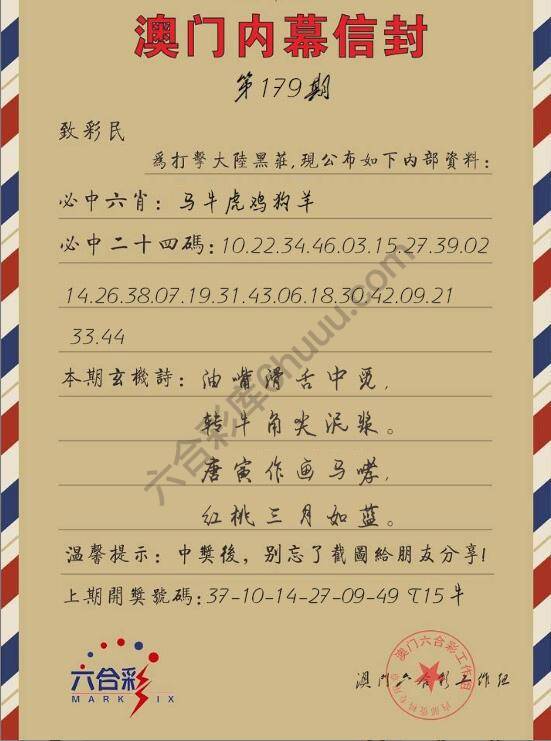 澳门内幕信封
第179期
致彩民
為打擊大陸黑莊,現公布如下內部資料:
必中六肖: 马牛虎鸡狗羊
必中二十四碼:10.22.34.46.03.15.27.39.02
14.26.38.07.19.31.43.06.18.30.42.09.21
33.44
本期玄機詩: 油嘴滑舌中觅,
转牛角尖泥浆。
唐寅作画马哮,
红桃三月如蓝。
温馨提示: 中獎後, 别忘了截圖給朋友分享!
上期開獎號碼:37-10-14-27-09-49 T15牛
六合彩库6huuu.com
六合彩
MARK SIX
澳门六合彩工作组
澳门六合彩工作组